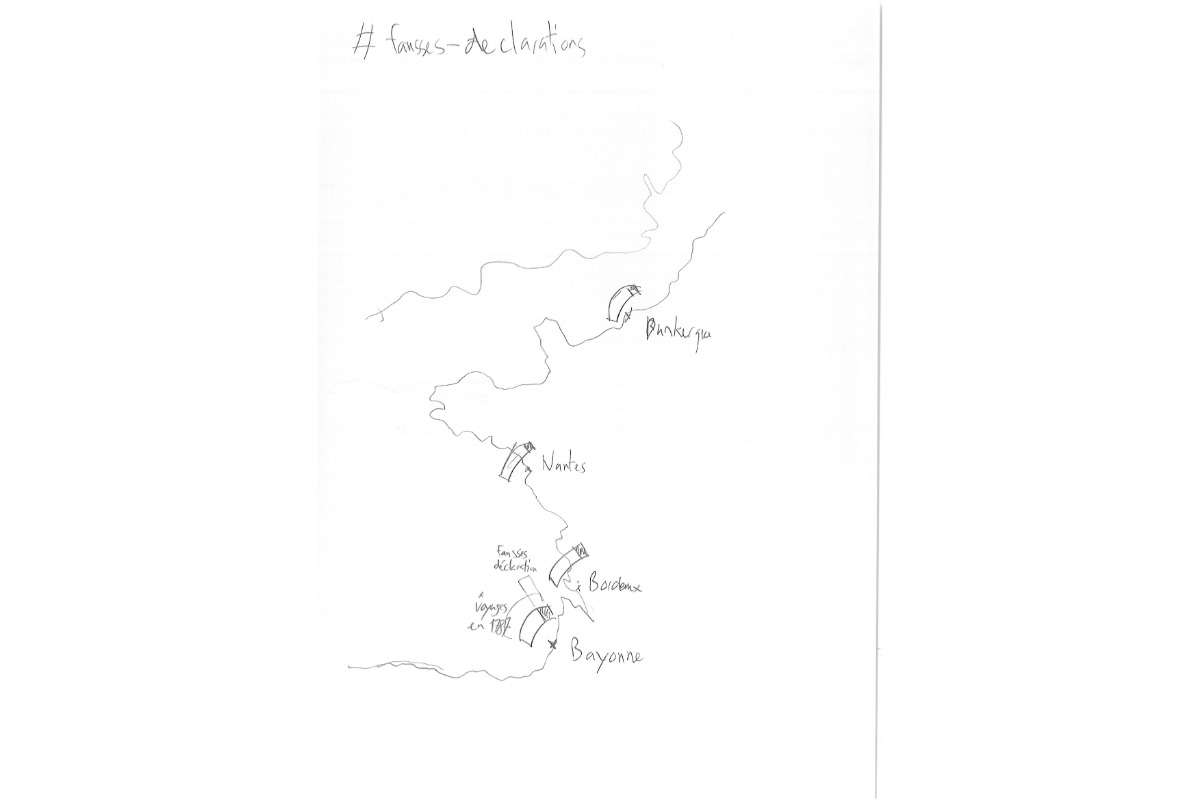 # fausses-declarations
Dunkerque
Nantes
fausses
déclaration
Bordeaux
# voyages
en 1787
Bayonne